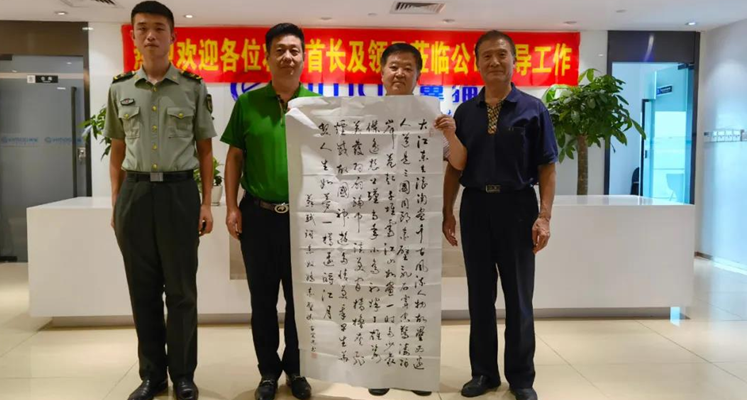 欢迎各位
首长及领
莅临公司
导工作
大江东去浪淘尽千古风流人物故垒西边
人道是三国周郎赤壁乱石穿空惊涛拍
岸卷起千堆雪江山如画一时多少豪
杰遥想公瑾当年小乔初嫁了雄姿
英发羽扇纶巾谈笑间樯橹灰飞
烟灭故国神游多情应笑我早生华
发人生如梦一樽还酹江月